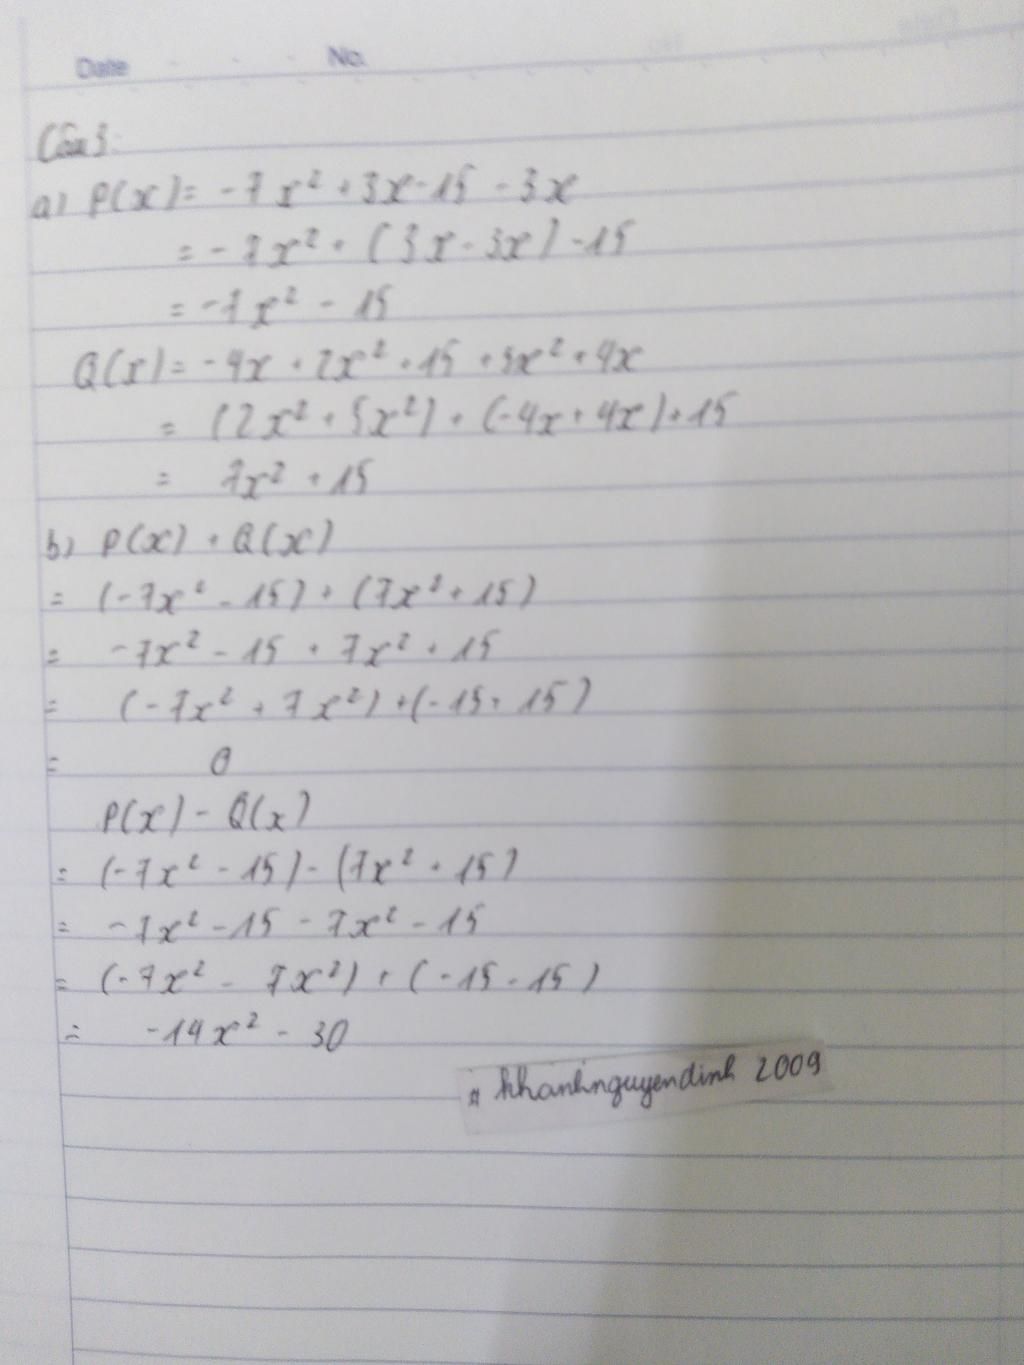 Date No.
Câu 3:
a) P(x) = -7x² + 3x - 15 - 3x
= -7x² + (3x - 3x) - 15
= -7x² - 15
Q(x) = -4x + 2x² + 15 + 5x² + 4x
= (2x² + 5x²) + (-4x + 4x) + 15
= 7x² + 15
b) P(x) + Q(x)
= (-7x² - 15) + (7x² + 15)
= -7x² - 15 + 7x² + 15
= (-7x² + 7x²) + (-15 + 15)
= 0
P(x) - Q(x)
= (-7x² - 15) - (7x² + 15)
= -7x² - 15 - 7x² - 15
= (-7x² - 7x²) + (-15 - 15)
= -14x² - 30
# khanhnguyendinh 2009